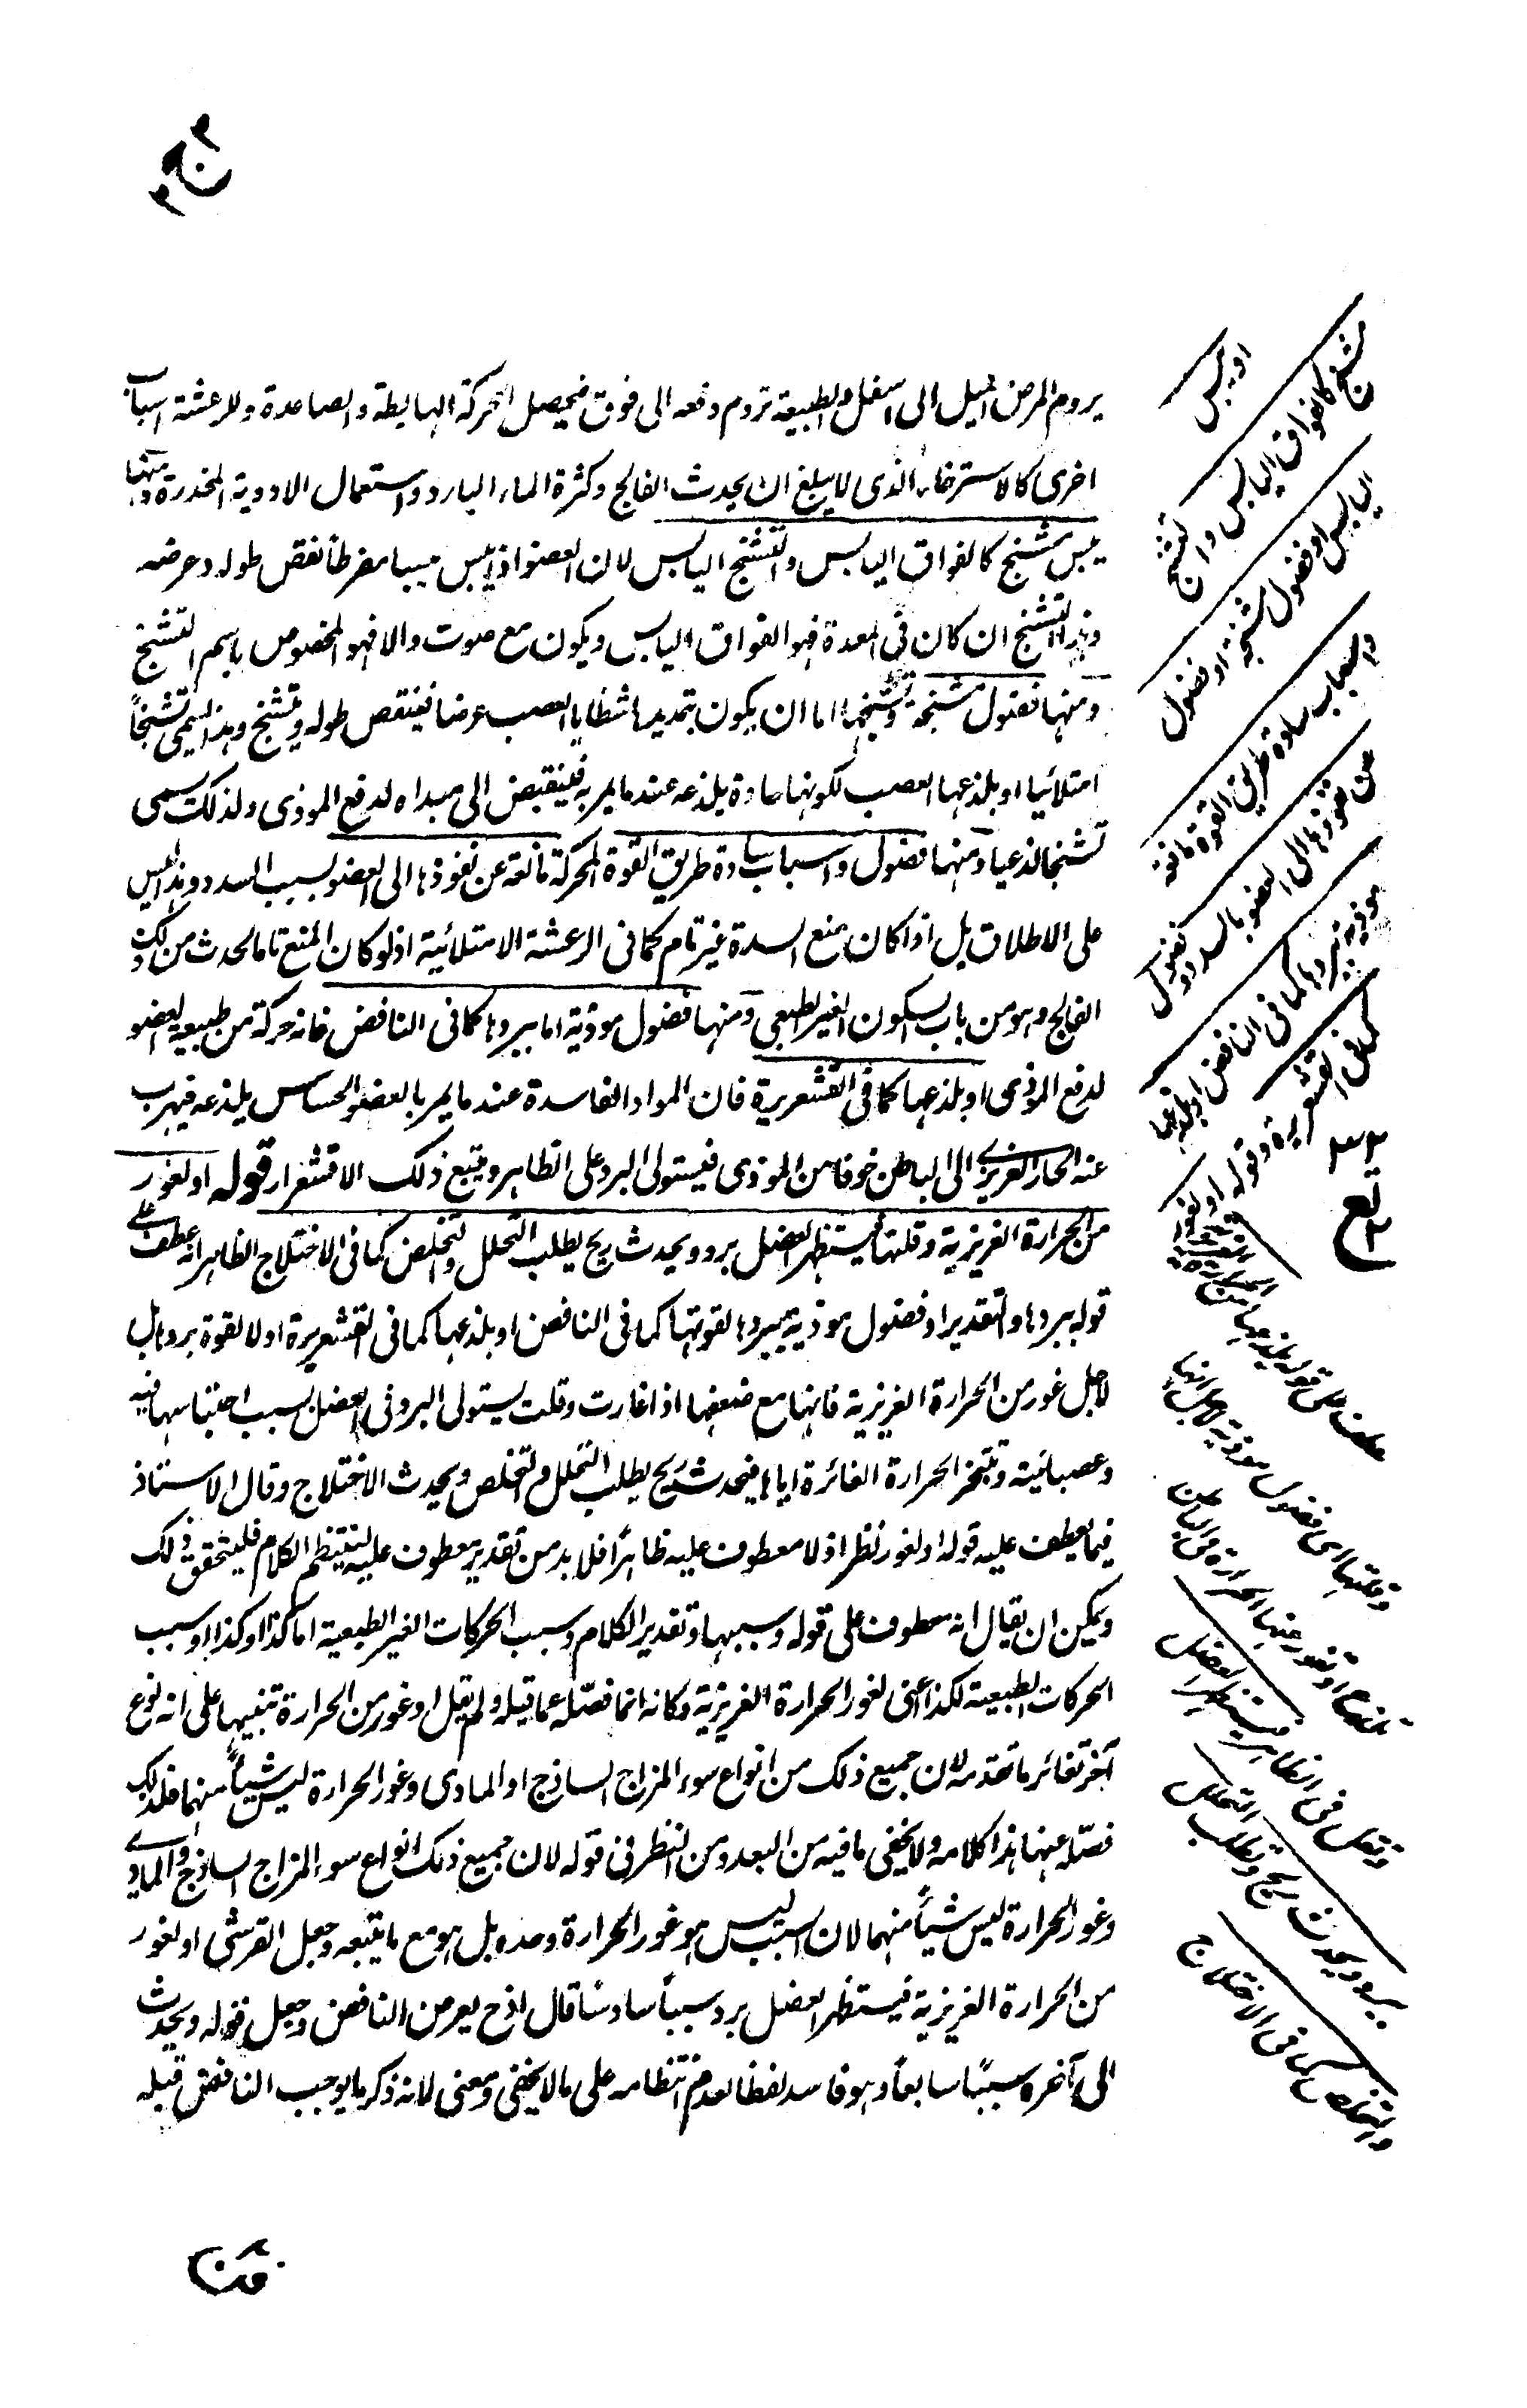 يروم المرض الميل الى اسفل والطبيعة تروم دفعه الى فوق فيحصل الحركة الهابطة والصاعدة وللرعشة اسباب
اخرى كالاسترخاء الذى لا يبلغ ان يحدث الفالج وكثرة الماء البارد واستعمال الادوية المخدرة ومنها
يبس مشنج كالفواق اليابس والتشنج اليابس لان العضو اذا يبس يبسا مفرطا نقص طوله وعرضه
وهذا التشنج ان كان فى المعدة فهو الفواق اليابس ويكون مع صوت والا فهو المخصوص باسم التشنج
ومنها فضول مشنجة وتشنجها اما ان يكون بتمديدها شظايا العصب عرضا فينقص طوله ويتشنج وهذا يسمى تشنجاً
امتلائيا او بلذعها العصب لكونها حادة يلذعه عند ما يمر به فينقبض الى مبداه لدفع الموذى ولذلك سمى
تشنجا لذعيا ومنها فضول واسباب سادة طريق القوة المحركة مانعة عن نفوذها الى العضو بسبب السدد وهذا ليس
على الاطلاق بل اذا كان منع السدة غير تام كما فى الرعشة الامتلائية اذ لو كان المنع تاما لحدث من ذلك
الفالج وهو من باب السكون الغير الطبيعى ومنها فضول موذية اما ببردها كما فى النافض فانه حركة من طبيعة العضو
لدفع الموذى او بلذعها كما فى القشعريرة فان المواد الفاسدة عند ما يمر بالعضو الحساس يلذعه فيهرب
عنه الحار الغريزى الى الباطن خوفا من الموذى فيستولى البرد على الظاهر ويتبع ذلك الاقشعرار قوله او لغور
من الحرارة الغريزية وقلتها فيستظهر العضل برد ويحدث ريح يطلب التحلل والتخلص كما فى الاختلاج الظاهر انه عطف على
قوله ببردها والتقدير او فضول موذية ببردها لقوتها كما فى النافض او بلذعها كما فى القشعريرة او لا لقوة بردها بل
لاجل غور من الحرارة الغريزية فانها مع ضعفها اذا غارت وقلت يستولى البرد فى العضل بسبب احتباسها فيه
وعصبانيته وتبخر الحرارة الغائرة اياها فيحدث ريح يطلب التحلل والتخلص ويحدث الاختلاج وقال الاستاذ
فيما يعطف عليه قوله او لغور نظر اذ لا معطوف عليه ظاهراً فلا بد من تقدير معطوف عليه لينتظم الكلام فليتحقق ذلك
ويمكن ان يقال انه معطوف على قوله وسببها وتقدير الكلام وسبب الحركات الغير الطبيعية اما كذا وكذا او سبب
الحركات الطبيعية لكذا اعنى لغور الحرارة الغريزية وكانه انما فصّله عما قبله ولم يقل او غور من الحرارة تنبيها على انه نوع
آخر تغائر ما تقدمه لان جميع ذلك من انواع سوء المزاج الساذج او المادى وغور الحرارة ليس شيئاً منهما فلذلك
فصّله عنها هذا كلامه ولا يخفى ما فيه من البعد ومن النظر فى قوله لان جميع ذلك انواع سوء المزاج الساذج والمادى
وغور الحرارة ليس شيئاً منهما لان السبب ليس هو غور الحرارة وحده بل هو مع ما يتبعه وجعل القرشى او لغور
من الحرارة الغريزية فيستظهر العضل برد سبباً سادسا قال اذ ح يعرض النافض وجعل قوله ويحدث
الى آخره سببا سابعاً وهو فاسد لفظا لعدم انتظامه على ما لا يخفى ومعنى لانه ذكر ما يوجب النافض قبله
او يبس
مشنج كالفواق اليابس والتشنج
اليابس او فضول مشنجة او فضول
واسباب سادة طريق القوة مانعة
عن نفوذها الى العضو بالسدد او فضول
موذية ببردها كما فى النافض او بلذعها
كما فى القشعريرة وقوله او لغور